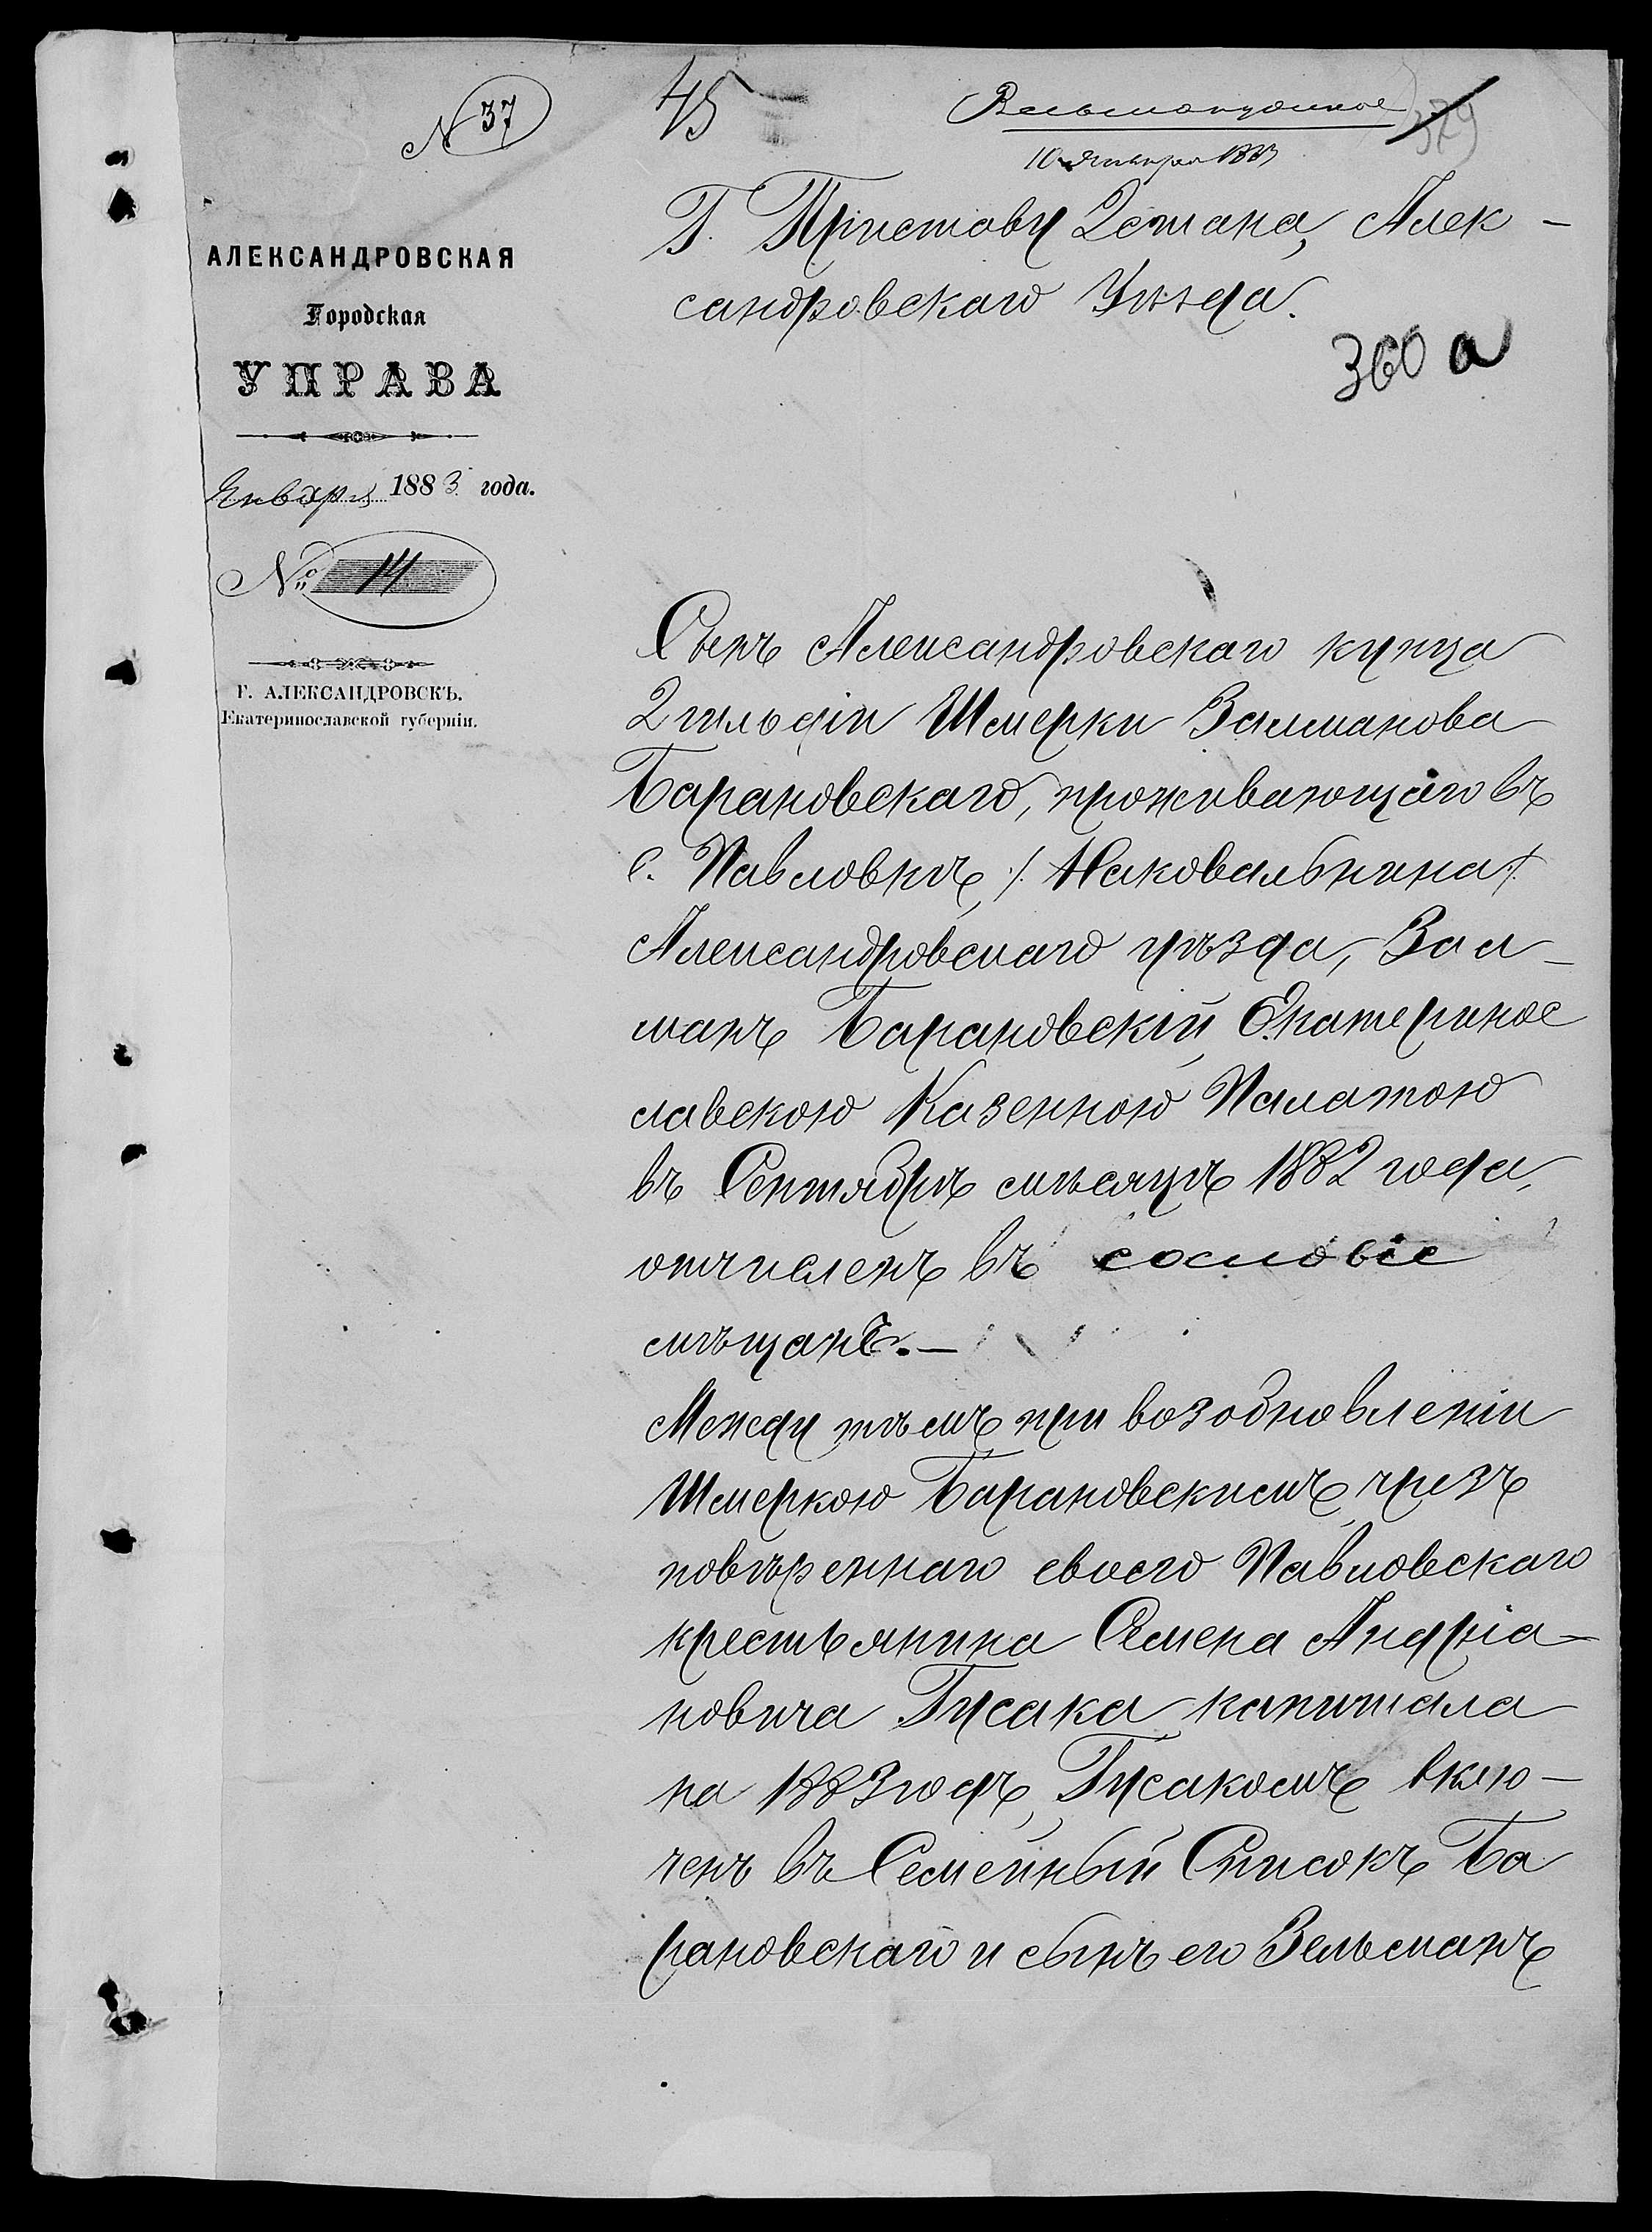 № 37
45
379
10 Января 1883
АЛЕКСАНДРОВСКАЯ
Городская
УПРАВА
Января 1883 года.
№ 14
Г. АЛЕКСАНДРОВСКЪ.
Екатеринославской губерніи.
Г. Приставу 2 стана, Алек-
сандровскаго Уѣзда.
360 а
Сынъ Александровскаго купца
2 гильдіи Шмерки Залманова
Барановскаго, проживающаго въ
с. Павловкѣ, /. Наковальнина ./
Александровскаго уѣзда, Зал-
манъ Барановскій, Екатеринос
лавскою Казенною Палатою
въ Сентябрѣ мѣсяцѣ 1882 года,
отчисленъ въ сословіе
мѣщанъ.—
Между тѣмъ, при возобновленіи
Шмеркою Барановскимъ, чрезъ
повѣреннаго своего Павловскаго
крестьянина Семена Андріа-
новича Гусака капитала
на 1883 годъ, Гусакомъ вклю-
ченъ въ Семейный Списокъ Ба
рановскаго и сынъ его Зельманъ